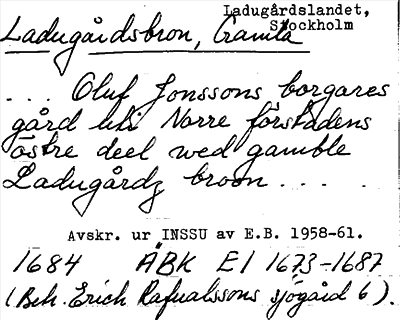 Ladugårdslandet,
Stockholm
Ladugårdsbron, Gamla
... Oluf Jonssons borgares
gård uti Norre förstadens
östre deel wed gamble
Ladugårdz broon ....
Avskr. ur INSSU av E.B. 1958-61.
1684 ÄBK E I 1673-1687
(Beh. Erich Rafualssons sjögård 6).